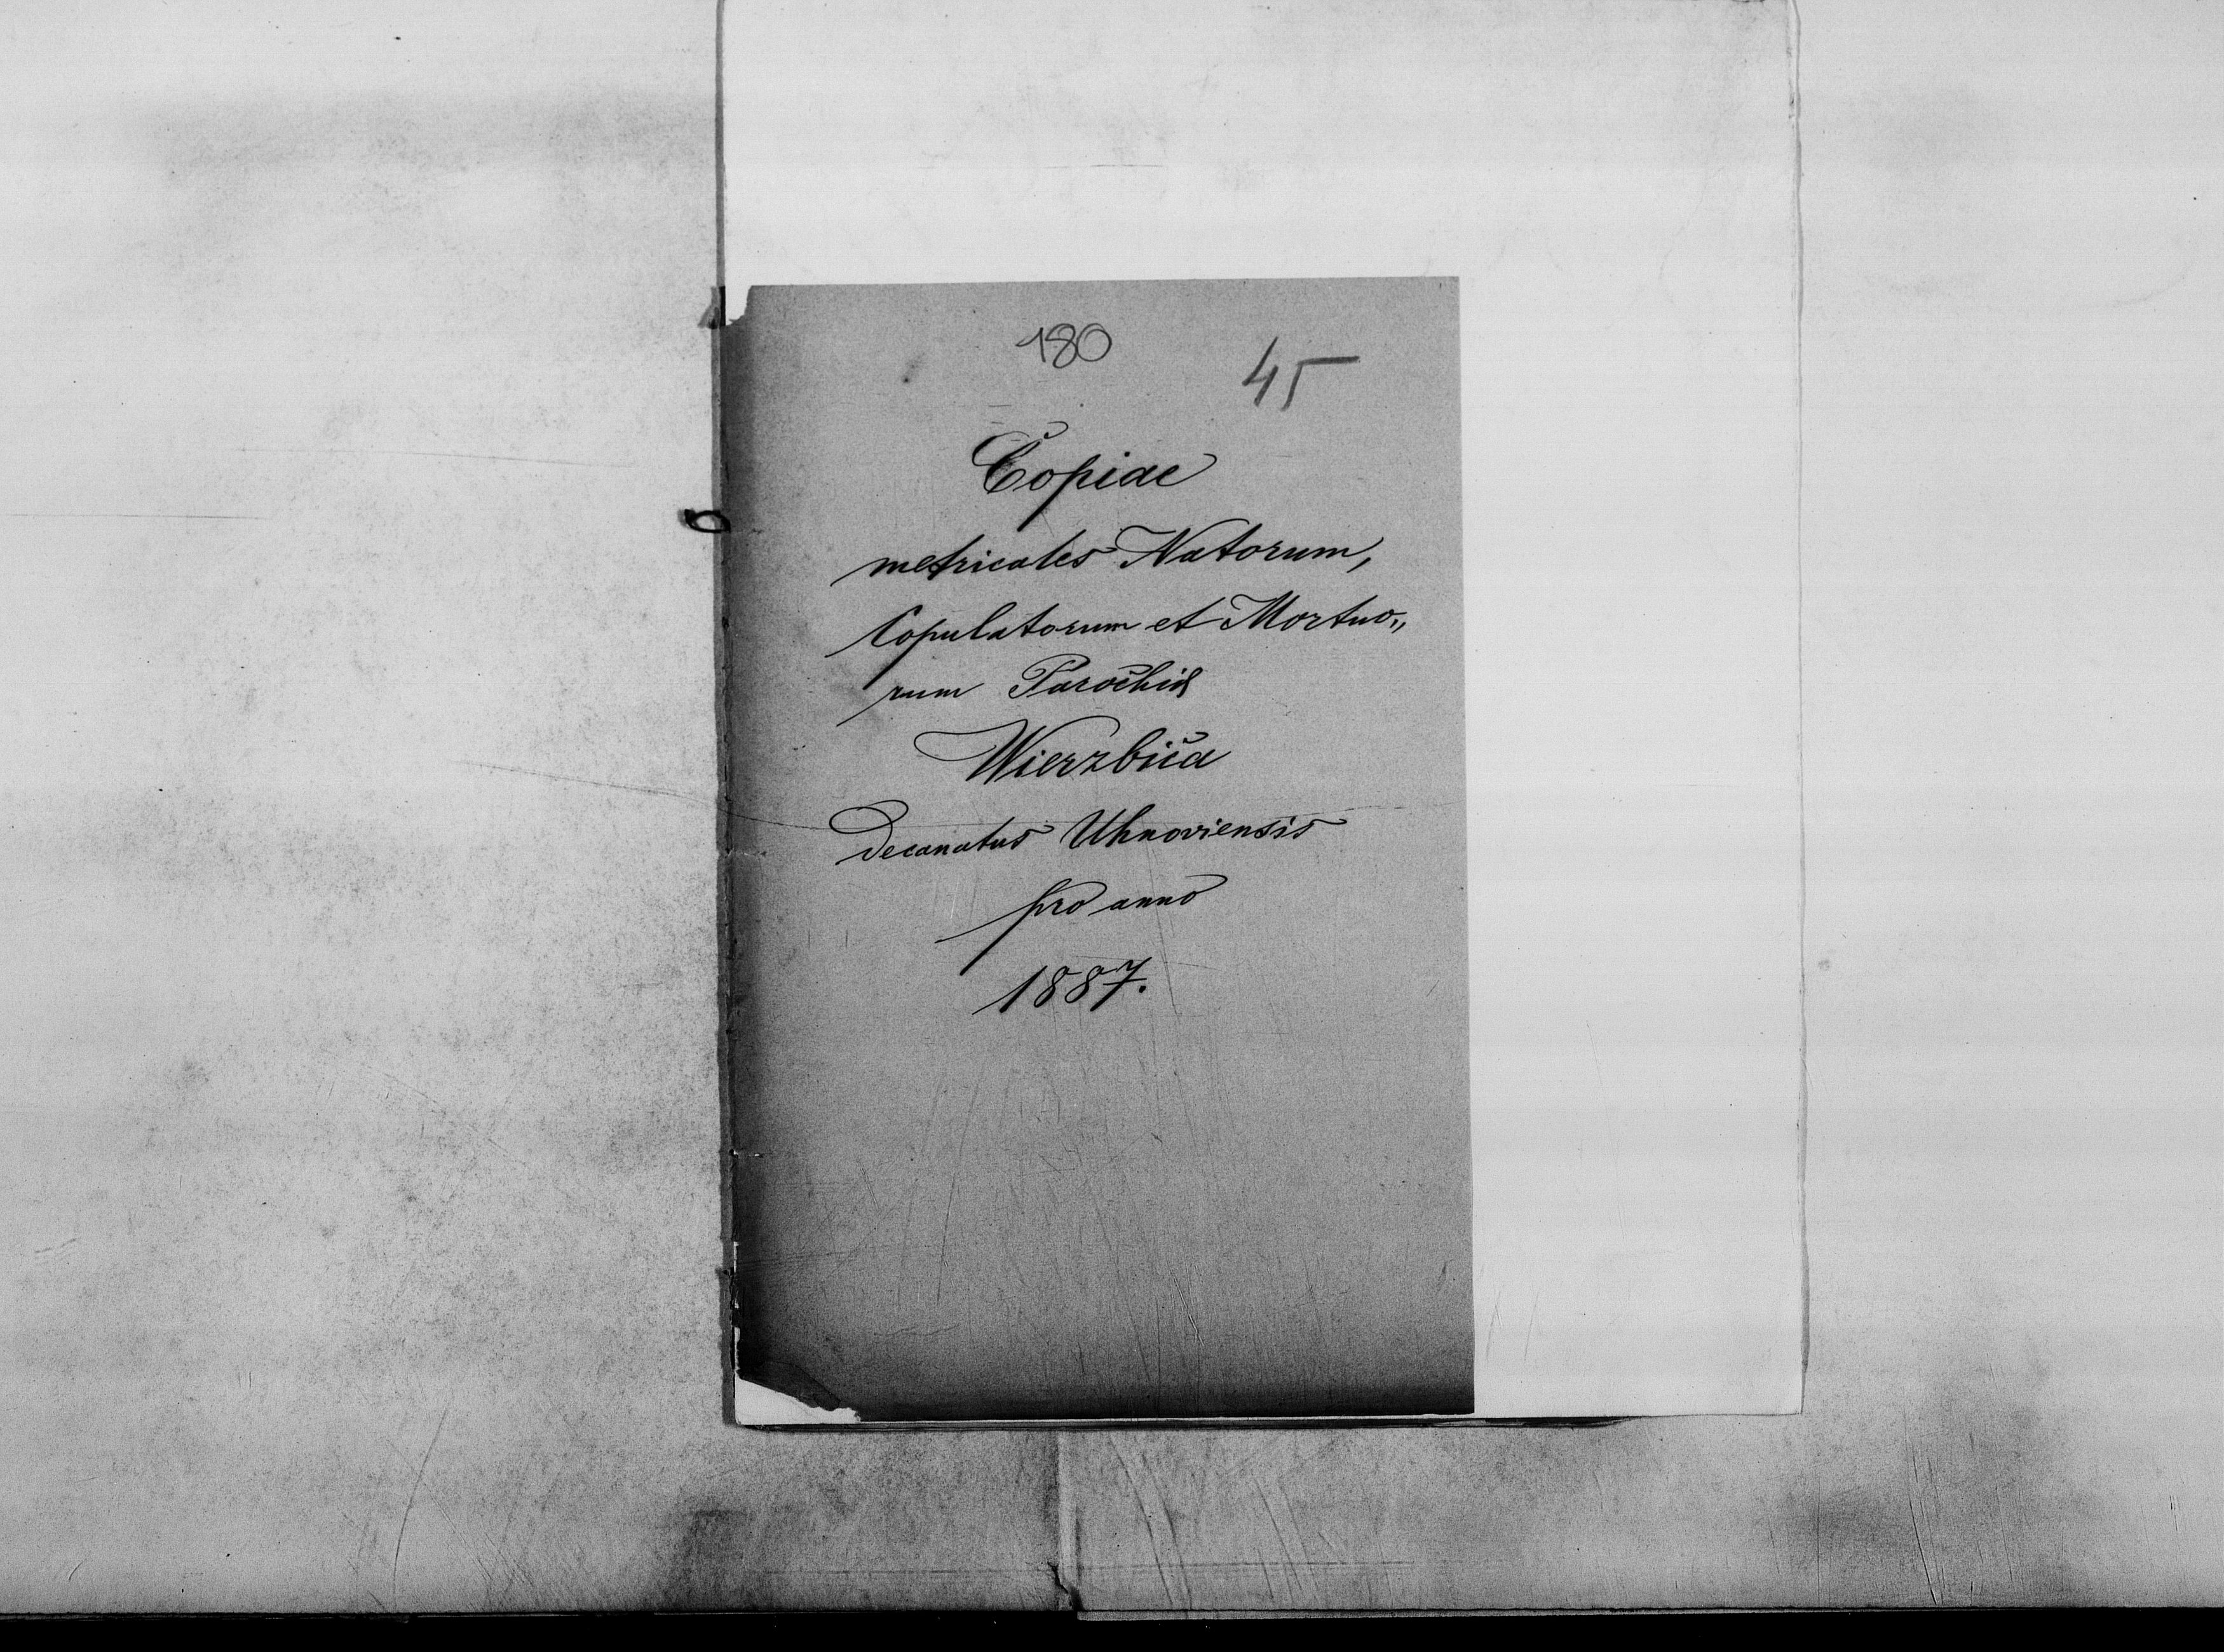 180
45
Copiae
metricales Natorum,
Copulatorum et Mortuo„
rum Parochiae
Wierzbica
Decanatus Uhnoviensis
pro anno
1887.